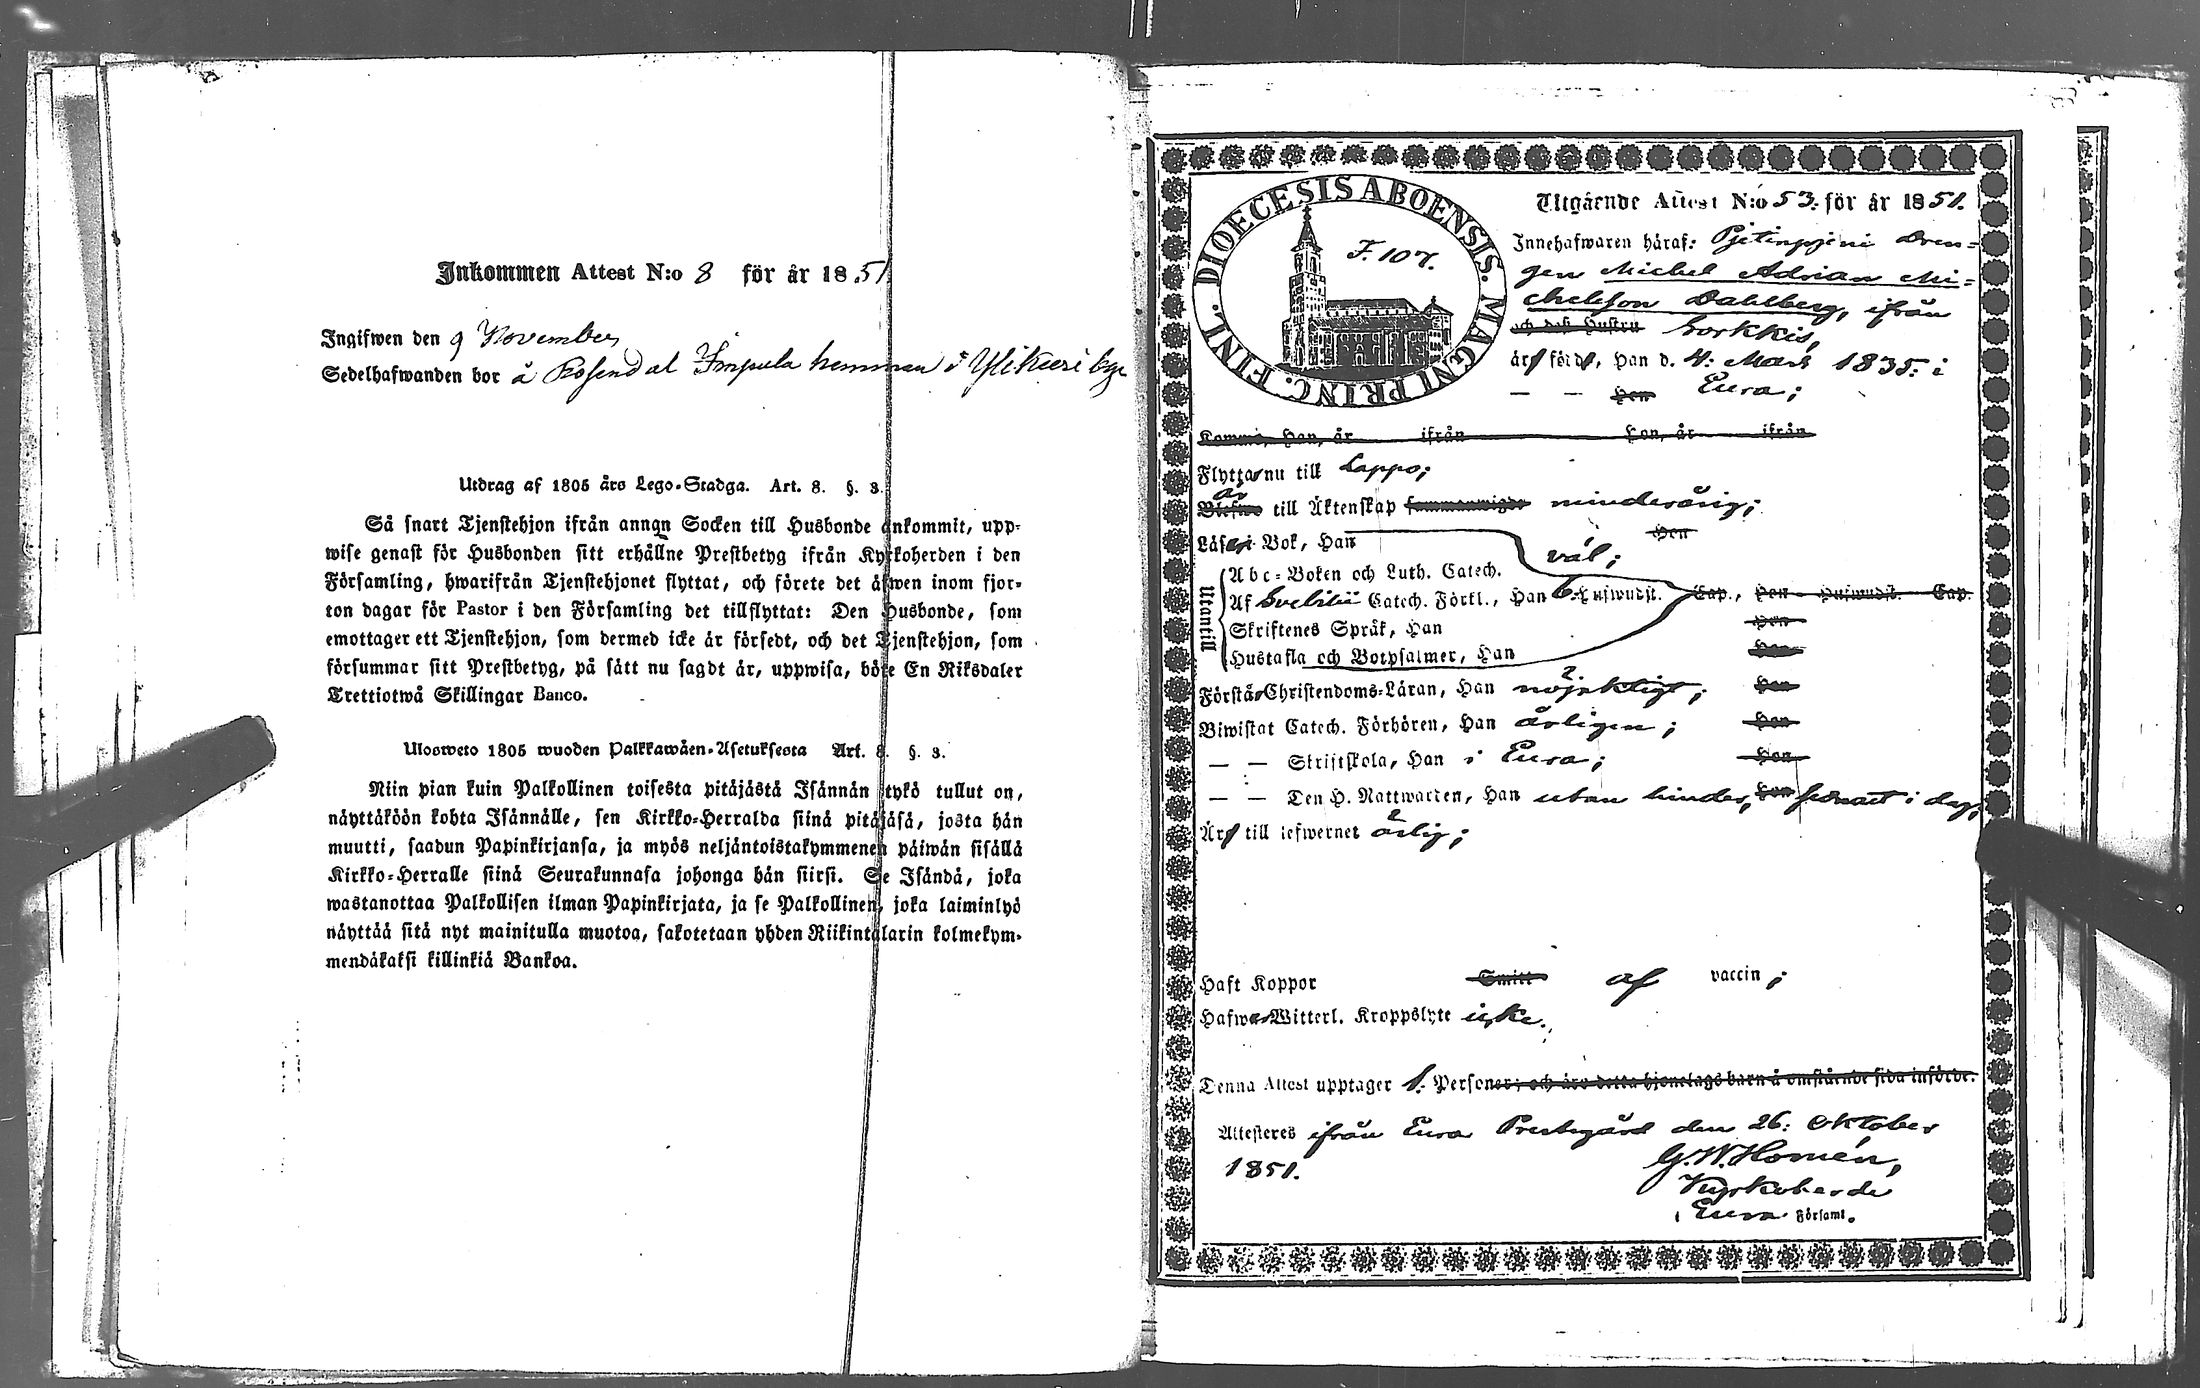 Inkommen Attest N:o 8 för år 1851
Ingifwen den 9 November
Sedelhafwanden bor å Rosendal Impula hemman i Ylikieri by
Utdrag af 1805 års Lego-Stadga. Art. 8. §. 3.
Så snart Tjenstehjon ifrån annan Socken till Husbonde ankommit, upp-
wise genast för Husbonden sitt erhållne Prestbetyg ifrån Kyrkoherden i den
Församling, hwarifrån Tjenstehjonet flyttat, och förete det äfwen inom fjor-
ton dagar för Pastor i den Församling det tillflyttat: Den Husbonde, som
emottager ett Tjenstehjon, som dermed icke är försedt, och det Tjenstehjon, som
försummar sitt Prestbetyg, på sätt nu sagdt är, uppwisa, böte En Riksdaler
Trettiotwå Skillingar Banco.
Ulosweto 1805 wuoden Palkkawäen-Asetuksesta Art. 8. §. 3.
Niin pian kuin Palkollinen toisesta pitäjästä Isännän tykö tullut on,
näyttäköön kohta Isännälle, sen Kirkko-Herralda siinä pitäjäsä, josta hän
muutti, saadun Papinkirjansa, ja myös neljäntoistakymmenen päiwän sisällä
Kirkko-Herralle siinä Seurakunnasa johonga hän siirsi. Se Isändä, joka
wastanottaa Palkollisen ilman Papinkirjata, ja se Palkollinen, joka laiminlyö
näyttää sitä nyt mainitulla muotoa, sakotetaan yhden Riikintalarin kolmekym-
mendäkaksi killinkiä Bankoa.
DIOECESIS ABOENSIS. MAGNI PRINC. FINL.
F. 107.
Utgående Attest N:o 53. för år 1851.
Innehafwaren häraf: Dren-
gen Michel Adrian Mi-
chelsson Dahlberg, ifrån
och dess Hustru Sorkkis,
är född, Han d. 4. Mars 1835. i
— — Hon Eura;
Kommo, Han, år ifrån Hon, år ifrån
Flyttar nu till Lappo;
är
Blefwo till Äktenskap sammanwigde minderårig;
Läser i Bok, Han väl; Hon
Utantill
Abc-Boken och Luth. Catech.
Af Svebilii Catech. Förkl., Han 6. Hufwudst. Cap., Hon Hufwudst. Cap.
Skriftenes Språk, Han Hon
Hustafla och Botpsalmer, Han Hon
Förstår Christendoms-Läran, Han nöjaktigt; Hon
Biwistat Catech. Förhören, Han årligen; Hon
— — Skriftskola, Han i Eura; Hon
— — Den H. Nattwarden, Han utan hinder, Hon senast i dag;
Är till lefwernet ärlig;
Haft Koppor Smitt af vaccin;
Hafwer Witterl. Kroppslyte icke.
Denna Attest upptager 1. Personer; och äro detta hjonelags barn å omstående sida införde.
Attesteres ifrån Eura Prestegård den 26: Oktober
1851. G. W. Homén,
Kyrkoherde
i Eura Församl.